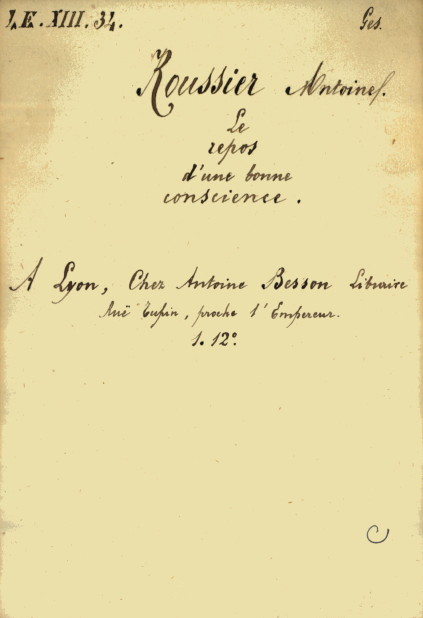 LE. XIII. 34. Ges.
Roussier Antoine.
Le
repos
d'une bonne
conscience.
A Lyon, Chez Antoine Besson Libraire
Ruë Tupin, proche l'Empereur.
1. 12°.